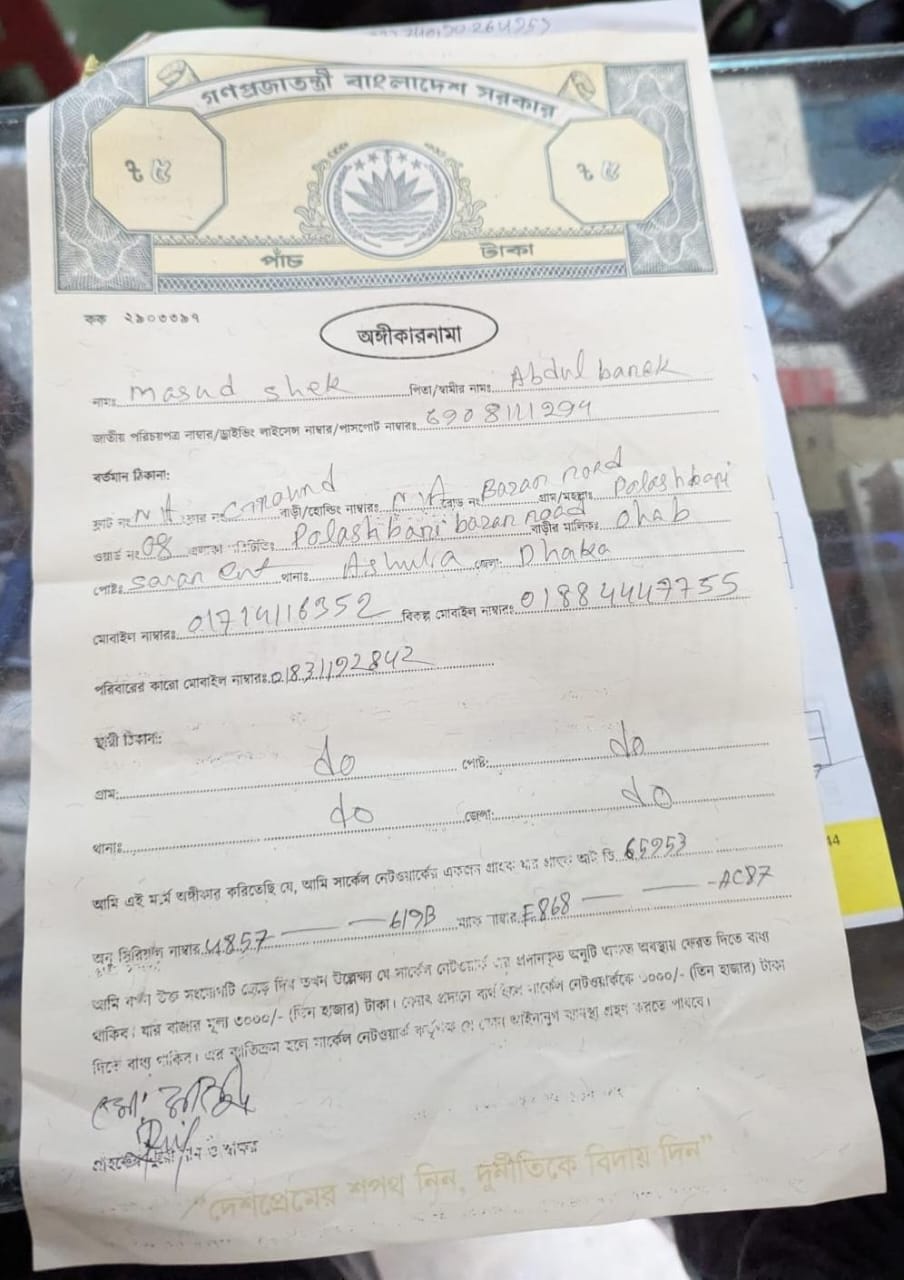 গণপ্রজাতন্ত্রী বাংলাদেশ সরকার
৳ ৫ ৳ ৫
পাঁচ টাকা
কক ২৯০৩৩৯৭
অঙ্গীকারনামা
নামঃ masud shek পিতা/স্বামীর নামঃ Abdul barek
জাতীয় পরিচয়পত্র নাম্বার/ড্রাইভিং লাইসেন্স নাম্বার/পাসপোর্ট নাম্বারঃ 6908111294
বর্তমান ঠিকানা:
ফ্লাট নং N/A ফ্লোর নং Ground বাড়ী/হোল্ডিং নাম্বারঃ N/A রোড নং Bazar road গ্রাম/মহল্লাঃ Polashbari
ওয়ার্ড নং 08 Polashbari bazar road বাড়ীর মালিকঃ Ohab
পোষ্টঃ savar cent থানাঃ Ashulia জেলা Dhaka
মোবাইল নাম্বারঃ 01714116352 বিকল্প মোবাইল নাম্বারঃ 01884447755
পরিবারের কারো মোবাইল নাম্বারঃ 01831192842
স্থায়ী ঠিকানা:
গ্রাম: do পোষ্ট: do
থানাঃ do জেলা: do
আমি এই মর্মে অঙ্গীকার করিতেছি যে, আমি সার্কেল নেটওয়ার্কের একজন গ্রাহক যার গ্রাহক আই ডি 65953
অনু সিরিয়াল নাম্বার 4857 — — 619B ম্যাক নাম্বার F868 — — -AC87
আমি উক্ত সংযোগটি ছেড়ে দিব তখন উল্লেখ্য যে সার্কেল নেটওয়ার্ক এর প্রদানকৃত অনুটি অবস্থায় ফেরত দিতে বাধ্য
থাকিব। যার বাজার মূল্য ৩০০০/- (তিন হাজার) টাকা। ফেরত প্রদানে ব্যর্থ হলে সার্কেল নেটওয়ার্ককে ৩০০০/- (তিন হাজার) টাকা
দিতে বাধ্য থাকিব। এর ব্যতিক্রম হলে সার্কেল নেটওয়ার্ক কর্তৃপক্ষ যে কোন আইনানুগ ব্যবস্থা গ্রহণ করতে পারবে।
"দেশপ্রেমের শপথ নিন, দুর্নীতিকে বিদায় দিন"
44